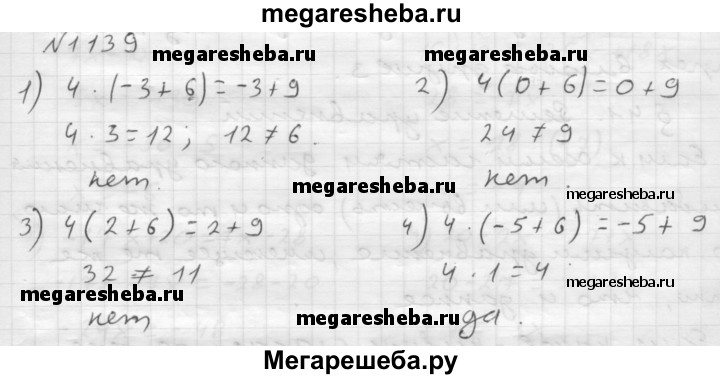 megaresheba.ru
N1139
megaresheba.ru megaresheba.ru
1) 4 · (-3 + 6) = -3 + 9 2) 4(0 + 6) = 0 + 9
4 · 3 = 12; 12 ≠ 6. 24 ≠ 9
нет. нет.
megaresheba.ru megaresheba.ru
3) 4(2 + 6) = 2 + 9 4) 4 · (-5 + 6) = -5 + 9
32 ≠ 11 4 · 1 = 4
megaresheba.ru megaresheba.ru
нет да.
Мегарешеба.ру